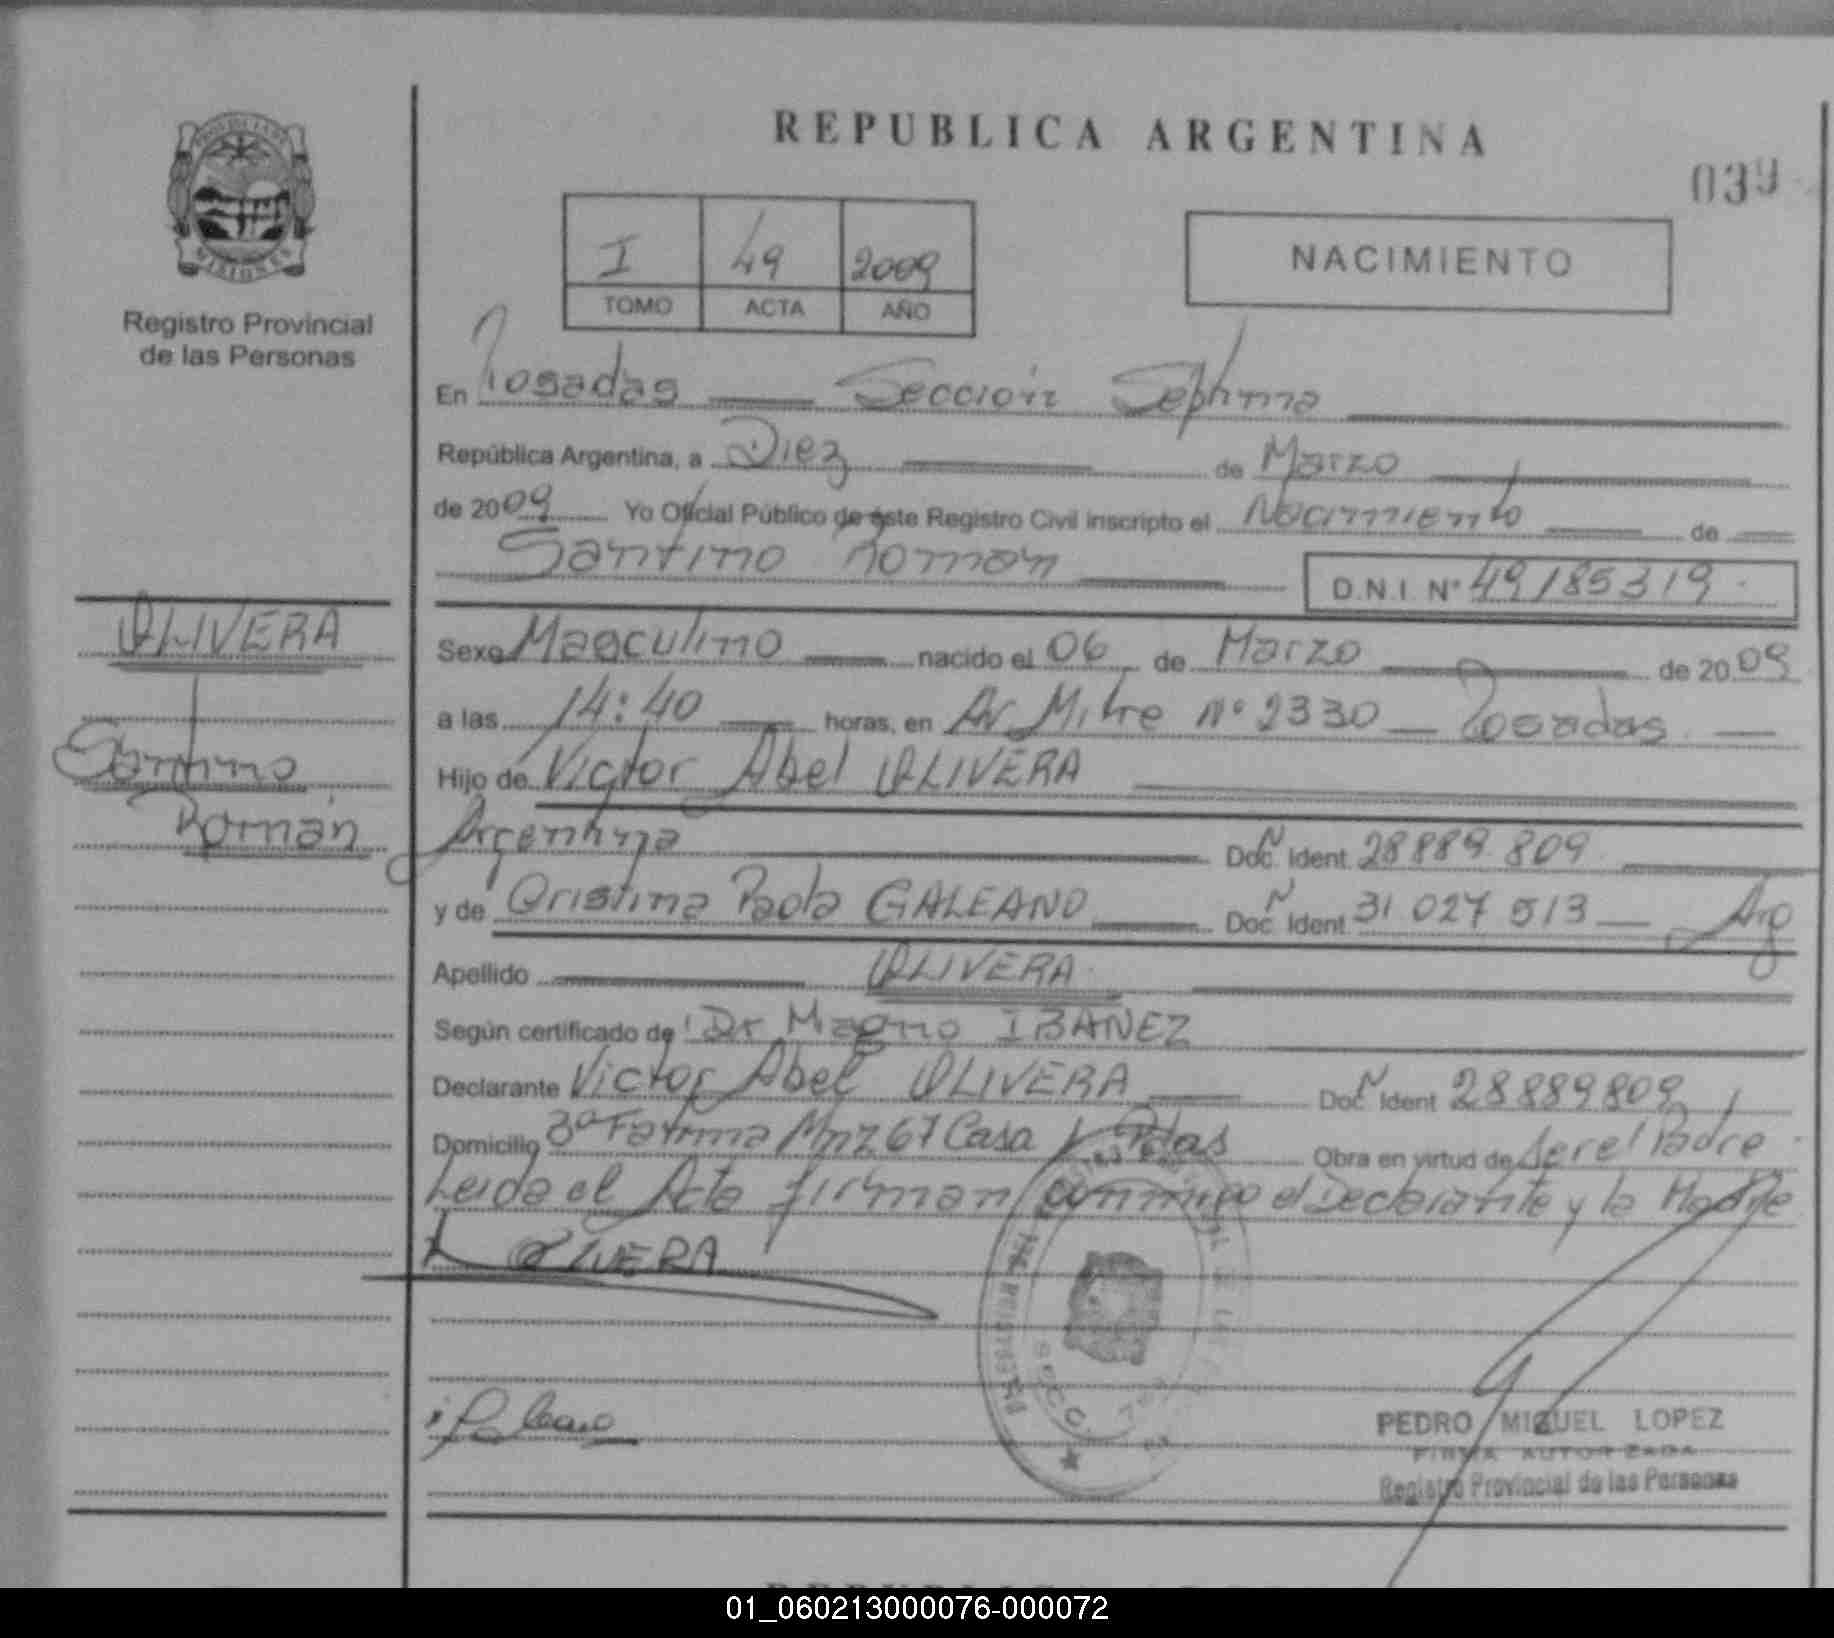 REPUBLICA ARGENTINA
039
PROVINCIA DE
MISIONES
Registro Provincial
de las Personas
I 49 2009
TOMO ACTA AÑO
NACIMIENTO
En Posadas Sección Septima
República Argentina, a Diez de Marzo
de 2009 Yo Oficial Público de éste Registro Civil inscripto el Nacimiento de
Santino Roman D.N.I. N° 49185319
OLIVERA
Santino
Román
Sexo Masculino nacido el 06 de Marzo de 2009
a las 14:40 horas, en Av. Mitre N° 2330 Posadas
Hijo de Victor Abel OLIVERA
Argentina Doc. Ident. 28889.809
y de Cristina Paola GALEANO Doc. Ident. 31 027 513 Arg
Apellido OLIVERA
Según certificado de Dr Magno IBAÑEZ
Declarante Victor Abel OLIVERA Doc. Ident 28889809
Domicilio Mnz 67 Casa Pdas Obra en virtud de ser el Padre
Leida el Acta firman conmigo el Declarante y la Madre
OLIVERA
Galeano
SECC. 7
PEDRO MIGUEL LOPEZ
FIRMA AUTORIZADA
Registro Provincial de las Personas
01_060213000076-000072